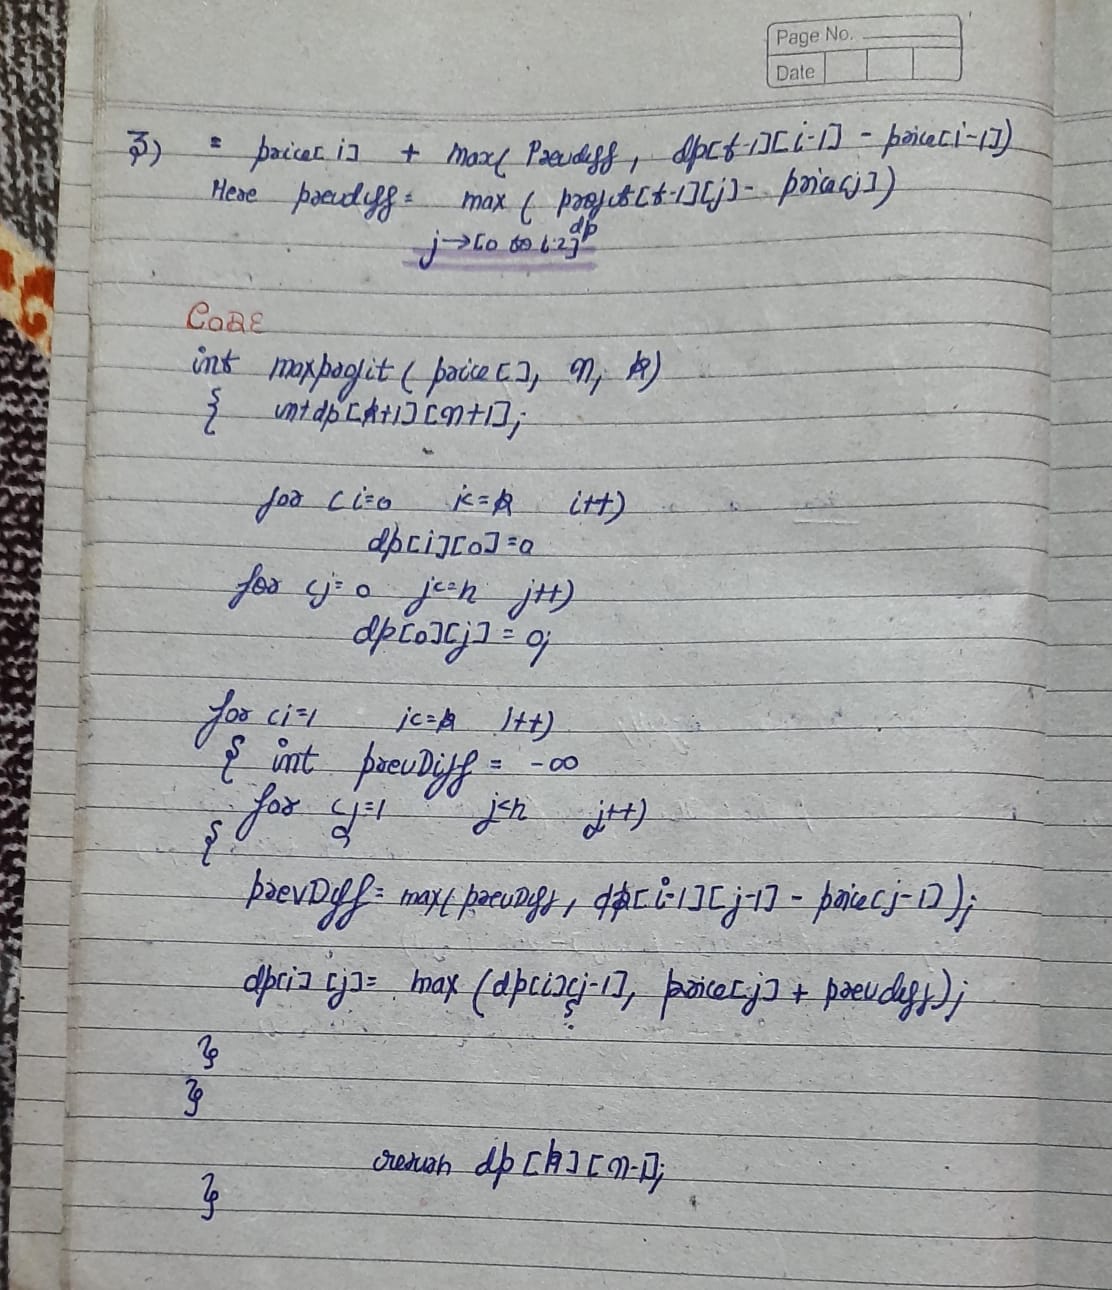 Page No.
Date
3) = price[i] + max( Prevdiff, dp[t-1][i-1] - price[i-1])
Here prevdiff = max ( profit[t-1][j] - price[j])
dp
j→[0 to i-2]
CODE
int maxprofit ( price[], n, k)
{ int dp[k+1][n+1];
for (i=0 i<=k i++)
dp[i][0]=0
for (j=0 j<=n j++)
dp[0][j] = 0;
for (i=1 i<=k i++)
{ int prevDiff = -∞
for (j=1 j<n j++)
{
prevDiff = max( prevDiff, dp[i-1][j-1] - price[j-1]);
dp[i][j] = max (dp[i][j-1], price[j] + prevdiff);
}
}
return dp[k][n-1];
}